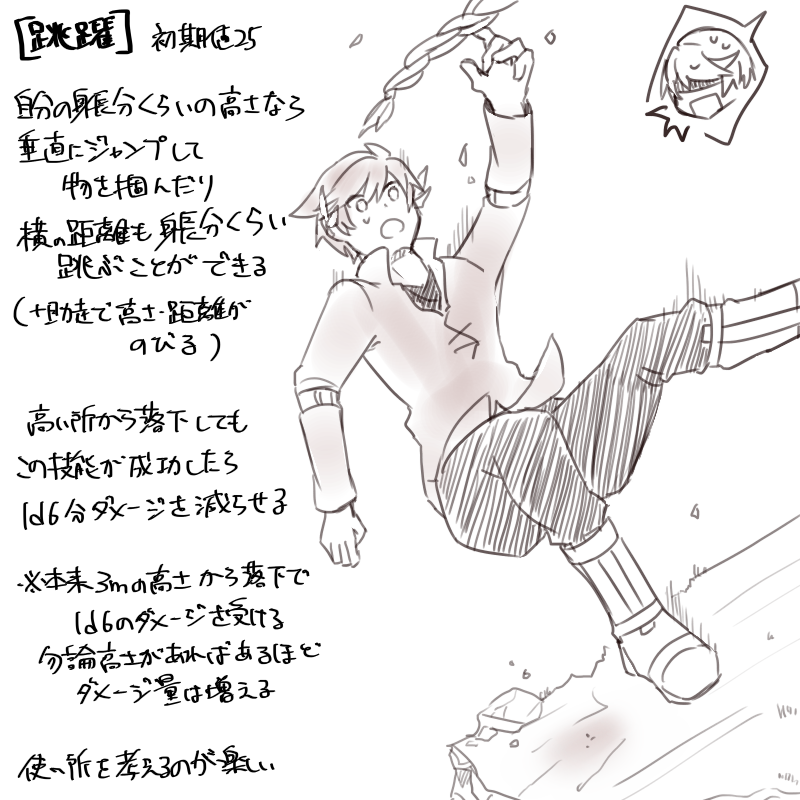 [跳躍] 初期値25
自分の身長分くらいの高さなら
垂直にジャンプして
物を掴んだり
横の距離も身長分くらい
跳ぶことができる
(+助走で高さ・距離が
のびる)
高い所から落下しても
この技能が成功したら
1d6分ダメージを減らせる
※本来3mの高さから落下で
1d6のダメージを受ける
勿論高さがあればあるほど
ダメージ量は増える
使い所を考えるのが楽しい